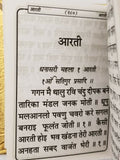 आरती
( १८० )
आरती
आरती
धनासरी महला १ आरती
१ओं सतिगुर प्रसादि ॥
गगन मै थालु रवि चंदु दीपक बने
तारिका मंडल जनक मोती ॥ धूपु
मलआनलो पवणु चवरो करे सगल
बनराइ फूलंत जोती ॥ १ ॥ कैसी
आरती होइ भव खंडना तेरी आरती ॥